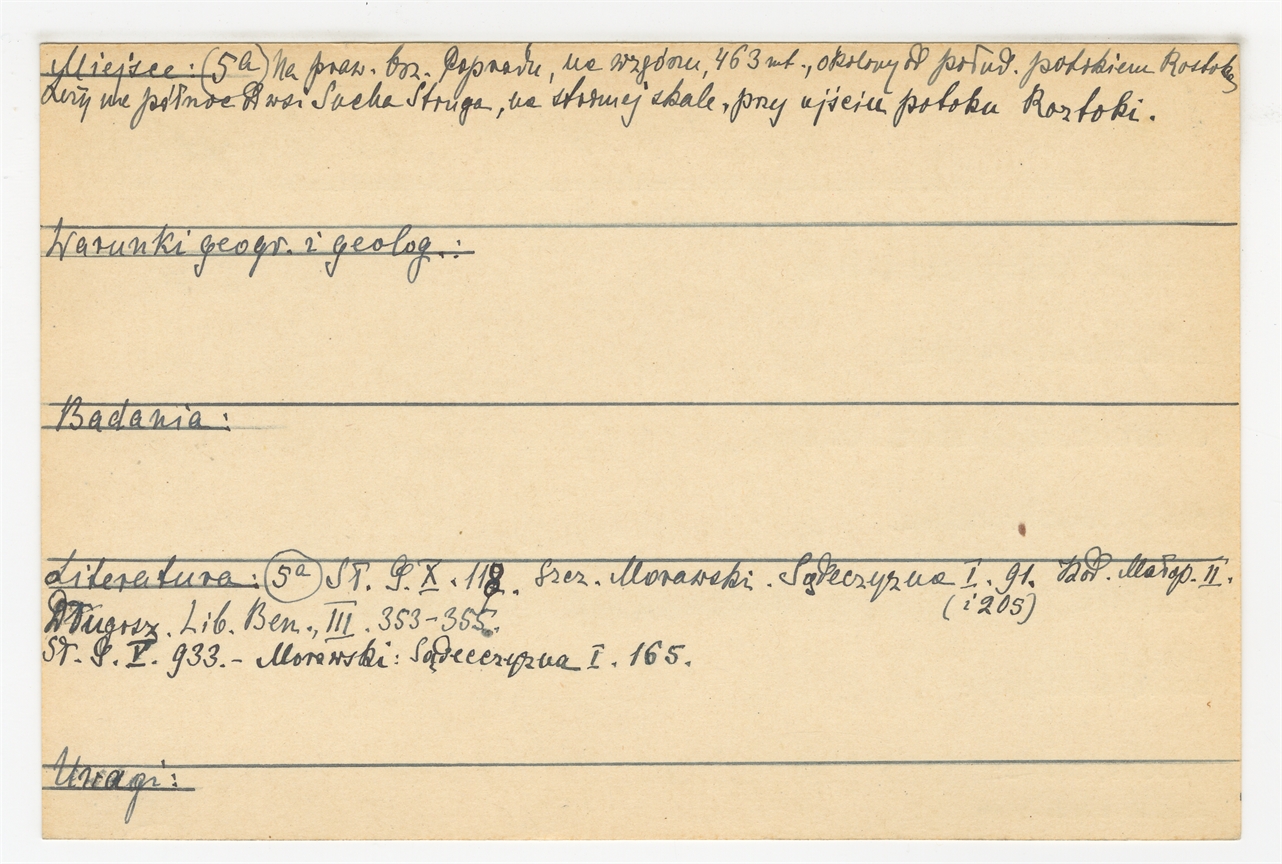 Miejsce: (5a) Na praw. brz. Popradu, na wzgórzu, 463 mt., okolony od połud. potokiem Roztoka
Leży na północ od wsi Sucha Struga, na stromej skale, przy ujściu potoku Roztoki.
Warunki geogr. i geolog.:
Badania:
Literatura: (5a) Sł. G. X. 118. Szcz. Morawski. Sądeczyzna I. 91. Kod. Małop. II.
(i 205)
Długosz. Lib. Ben., III. 353-355.
Sł. G. V. 933. - Morawski: Sądecczyzna I. 165.
Uwagi: